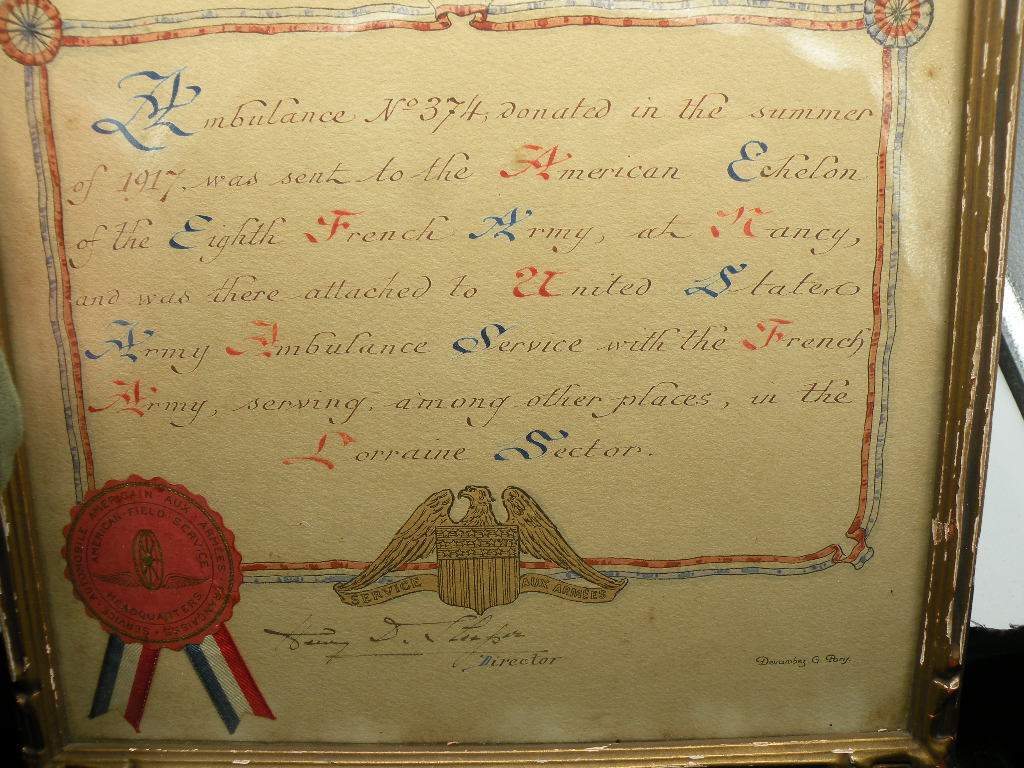 Ambulance No 374, donated in the summer
of 1917, was sent to the American Echelon
of the Eighth French Army, at Nancy,
and was there attached to United States
Army Ambulance Service with the French
Army, serving, among other places, in the
Lorraine Sector.
SERVICE AUX ARMÉES
AUTOMOBILE AMERICAIN AUX ARMÉES FRANÇAISES · SERVICE
AMERICAN · FIELD SERVICE
HEADQUARTERS
Director
Devambez, G. Pary.